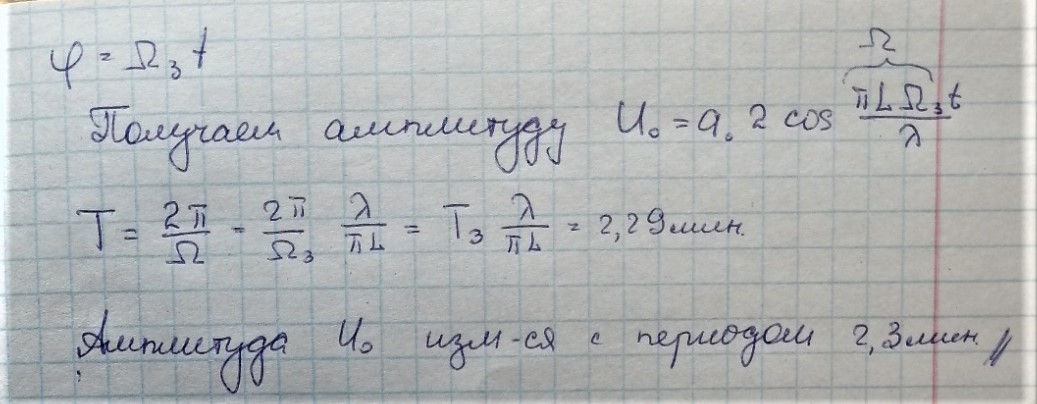 φ = Ω₃ t
Получаем амплитуду U₀ = a₀ 2 cos \frac{\overbrace{πLΩ₃}^{Ω} t}{λ}
T = \frac{2π}{Ω} = \frac{2π}{Ω₃} \frac{λ}{πL} = T₃ \frac{λ}{πL} = 2,29 мин.
Амплитуда U₀ изм-ся с периодом 2,3 мин. //